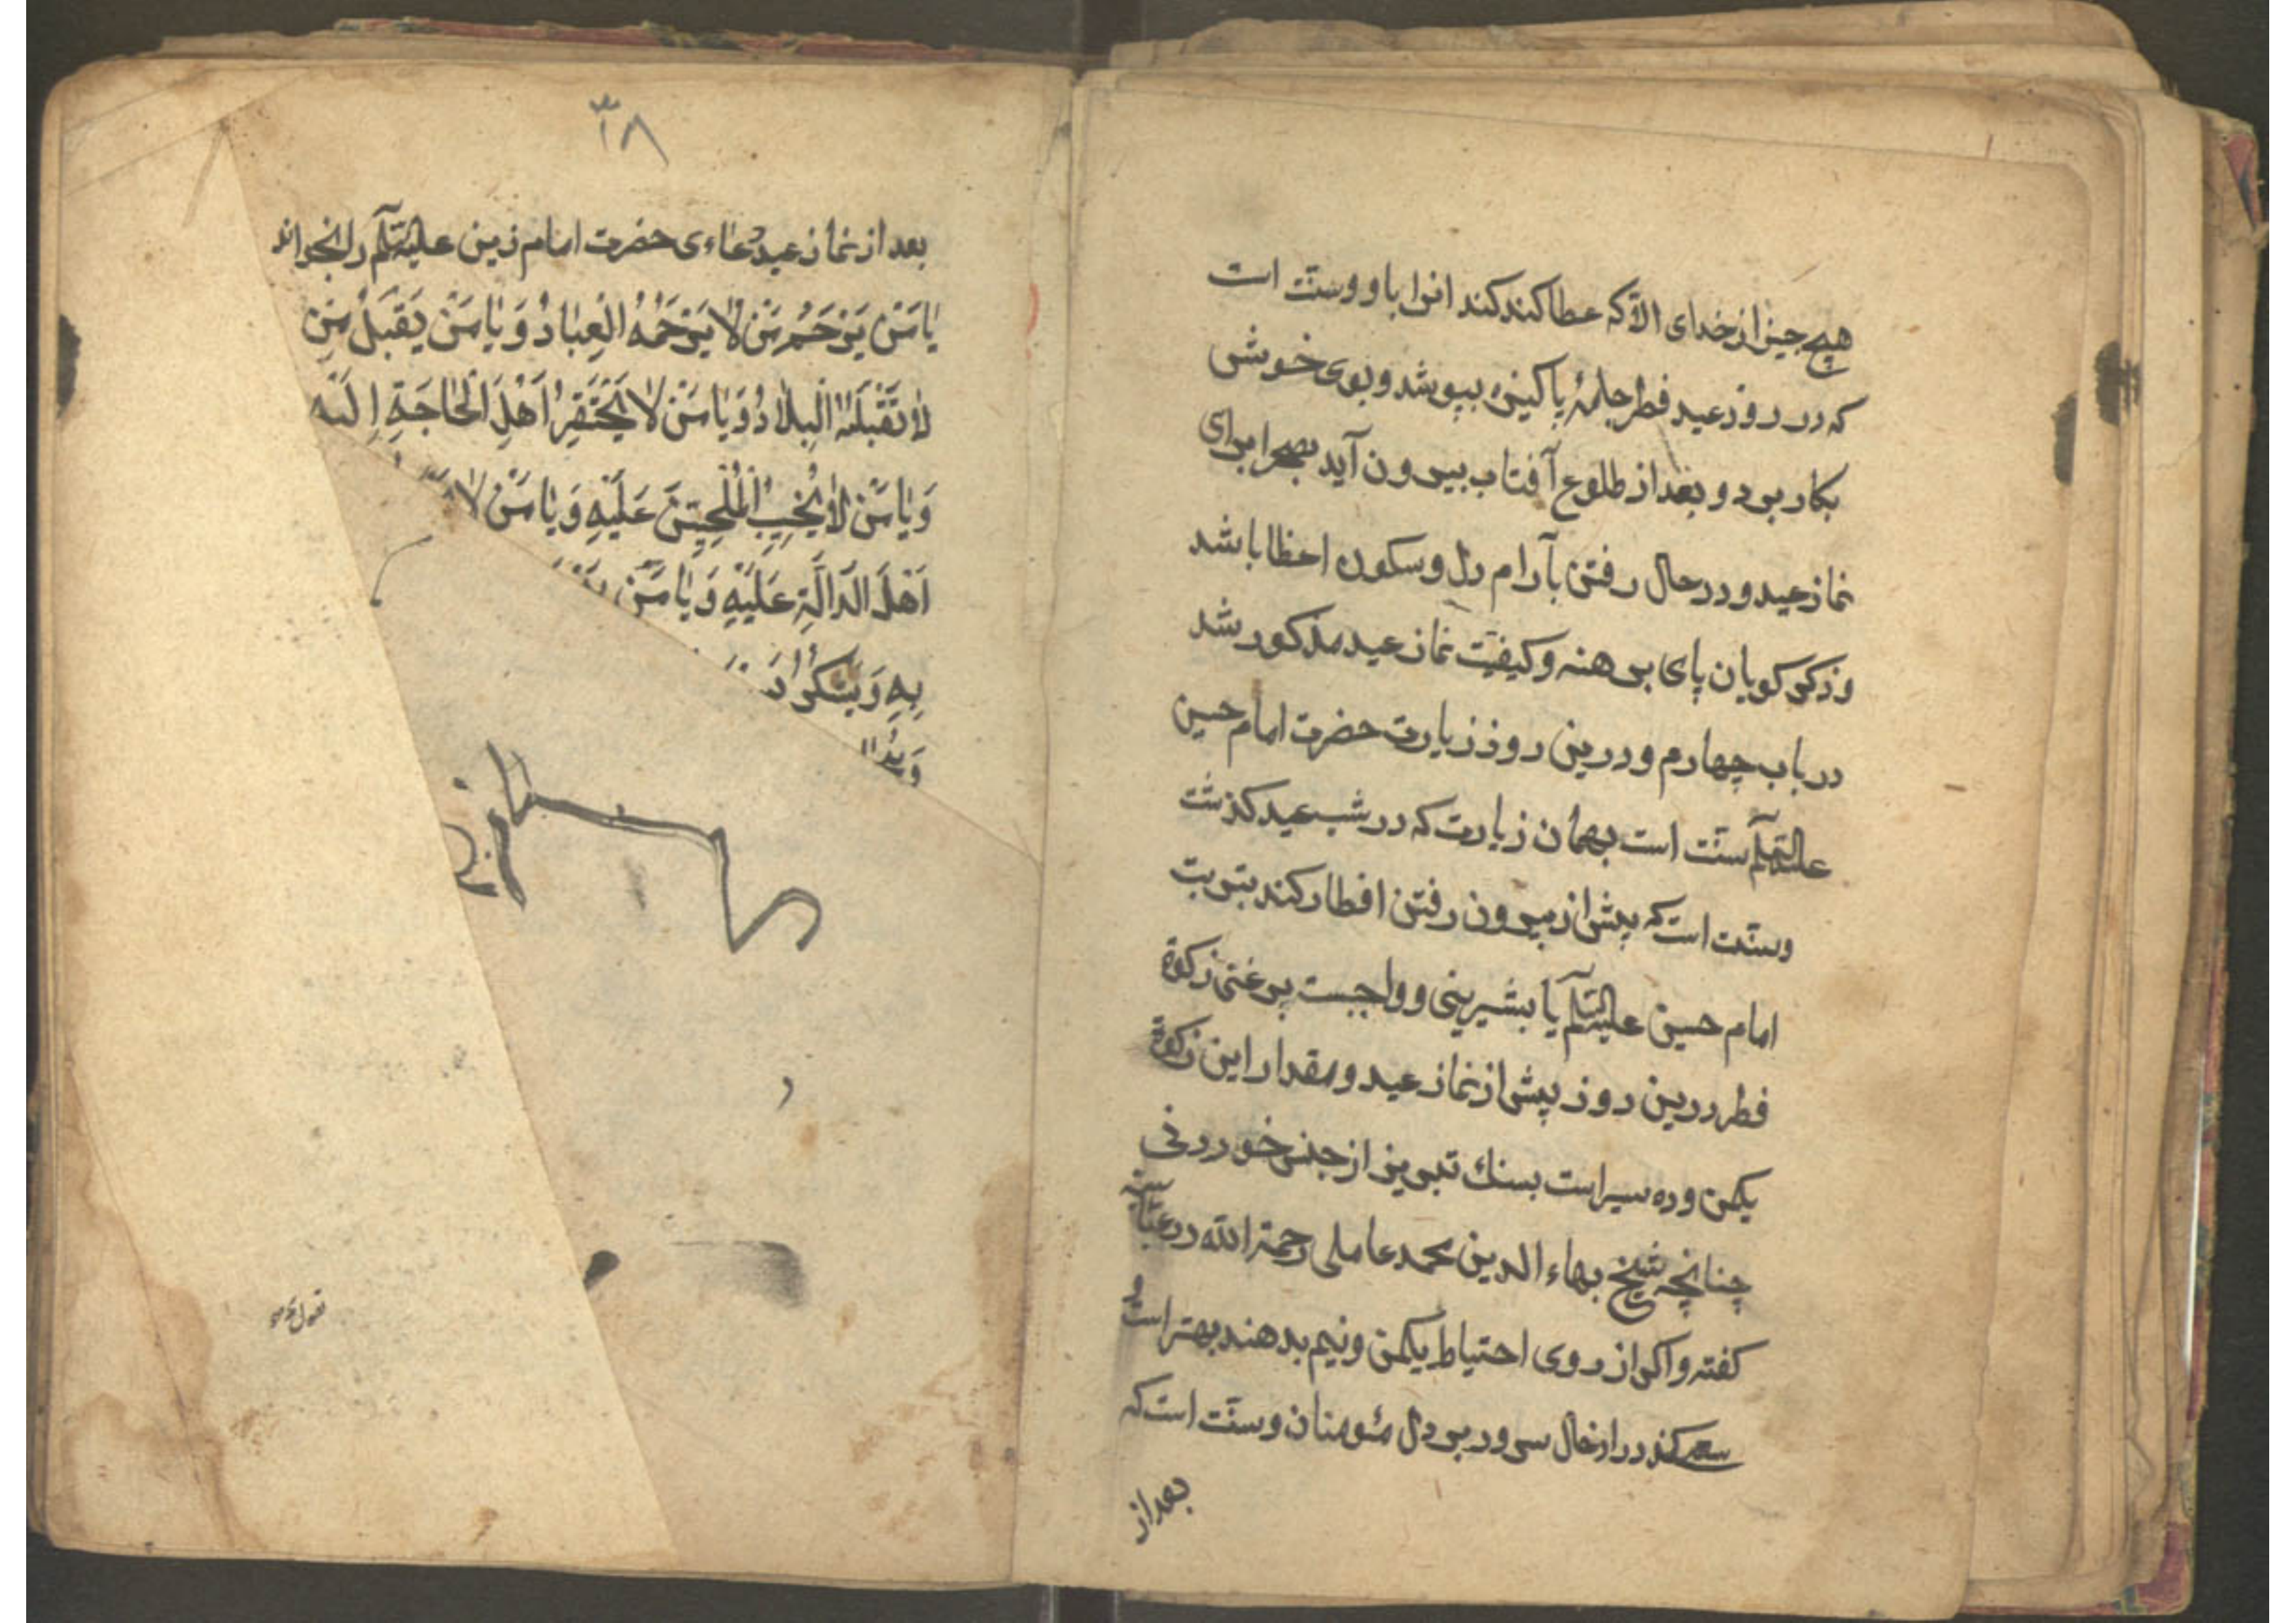 هیچ چیز از خدای الا که عطا کند کند انرا باو و سنت است
که در روز عید فطر جامهٔ پاکیزه بپوشد و بوی خوشی
بکار برد و بعد از طلوع آفتاب بیرون آید بصحرا برای
نماز عید و در حال رفتن بآرام دل و سکون اعضا باشد
و ذکر کویان پای برهنه و کیفیت نماز عید مذکور شد
در باب چهارم و درین روز زیارت حضرت امام حسین
علیه السلم سنت است بهمان زیارت که در شب عید کذشت
و سنت است که پیش از بیرون رفتن افطار کند بتربت
امام حسین علیه السلم یا بشیرینی و واجبست بر غنی زکوة
فطر درین روز پیش از نماز عید و مقدار این زکوة
یکمن و ده سیر است بسنك تبریز از جنس خوردنی
چنانچه شیخ بهاء الدین محمد عاملی رحمة الله در
کفته و اکر از روی احتیاط یکمن و نیم بدهند بهتر است و
سعی کند در ادخال سرور بر دل مئومنان و سنت است که
بعد از
۳۸
بعد از نماز عید دعاءی حضرت امام زین علیه السلم را بخواند
یٰا مَنْ یَرْحَمُ مَنْ لٰا یَرْحَمُهُ الْعِبٰادُ وَ یٰا مَنْ یَقْبَلُ مَنِ
لٰا تَقْبَلَهُ الْبِلٰادُ وَ یٰا مَنْ لٰا یَحْتَقِرُ اَهْلَ الْحٰاجَةِ اِلَیْهِ
وَ یٰا مَنْ لٰا یُخَیِّبُ الْمُلْحِیّنَ عَلَیْهِ وَ یٰا مَنْ لٰا
اَهْلَ الدّٰالَّةِ عَلَیْهِ وَ یٰا مَنْ
بِهِ وَ یَشْکُرُ